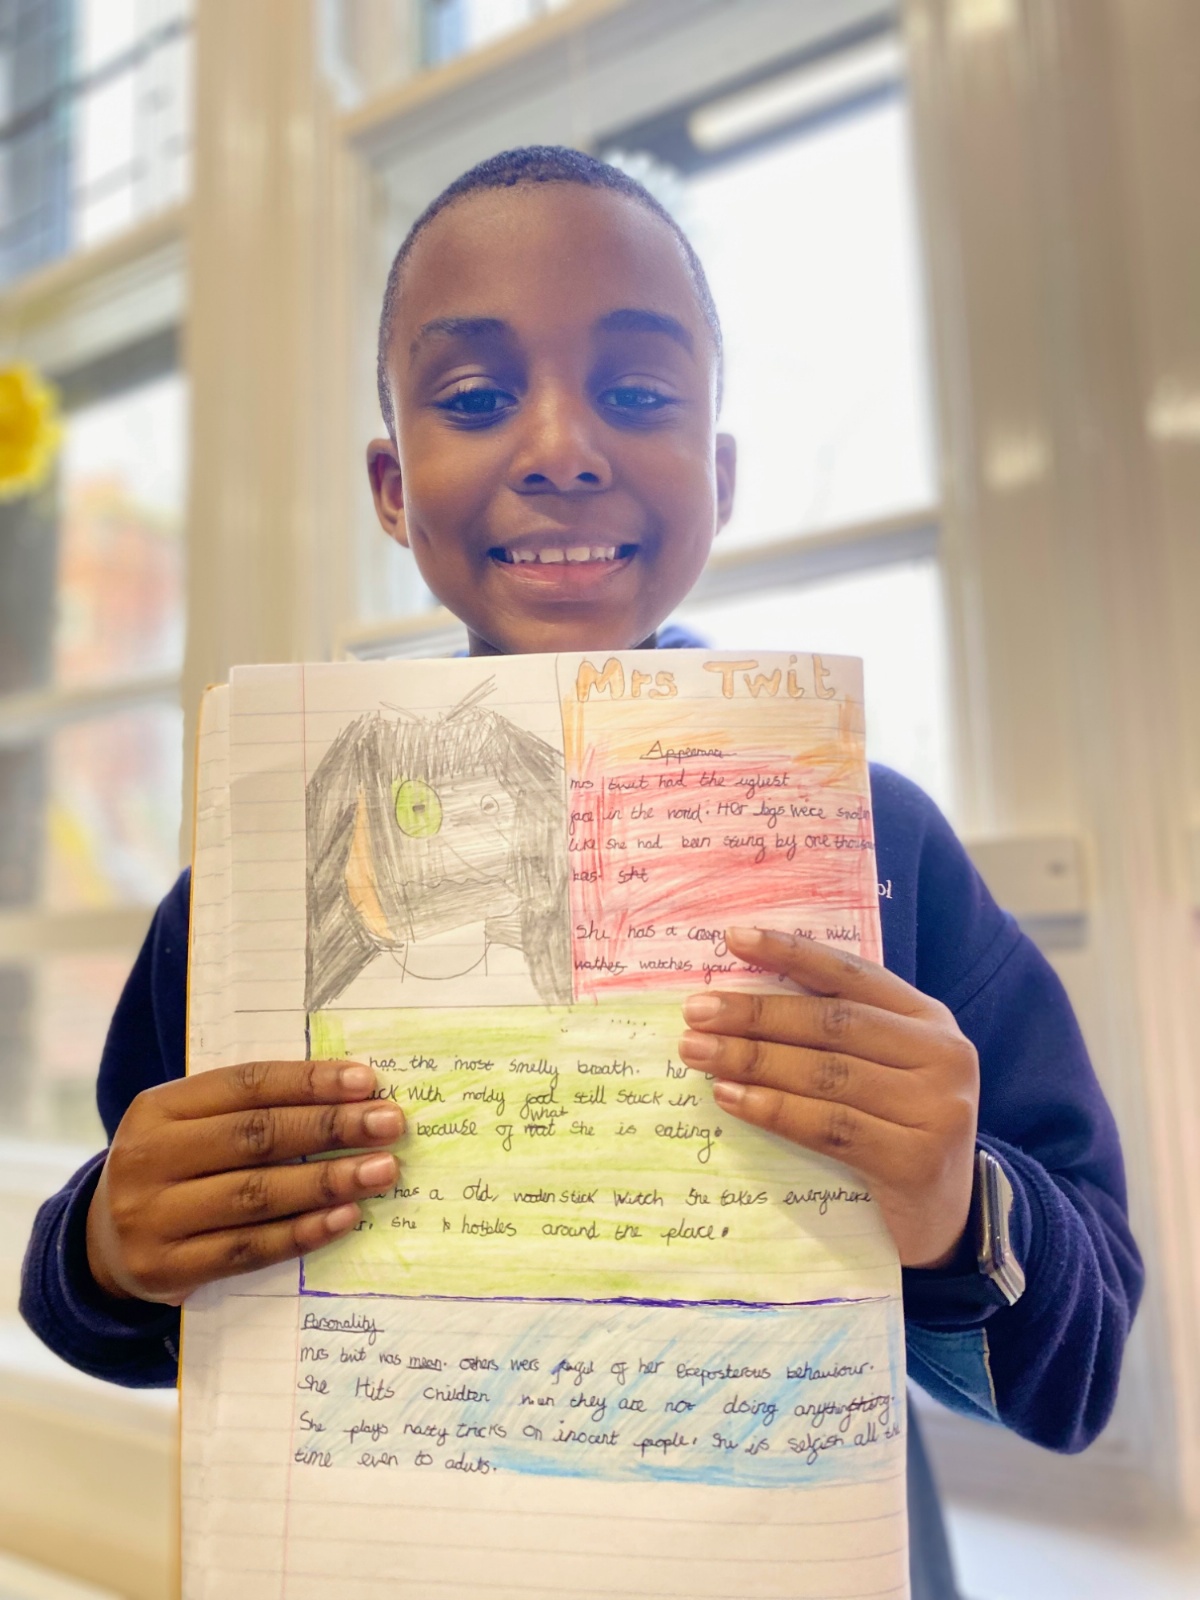 Mrs Twit
Appearance
Mrs twit had the ugliest
face in the world. Her legs were
like she had been stung by one
She has a creepy
watches your
has the most smelly breath. her
with moldy food still stuck in.
what
because of she is eating.
has a old, wooden stick witch she takes everywhere
she hobbles around the place.
ol
Personality
Mrs twit was mean. others were of her behaviour.
She Hits children they are not doing anything.
She plays nasty tricks on inocent people. She is selfish all
time even to aduts.